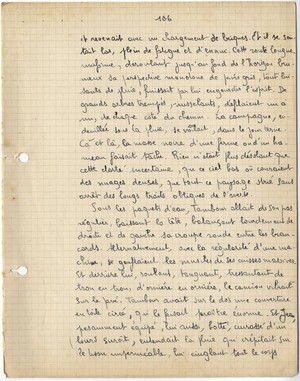 106
et revenait avec un chargement de briques. Et il se sen-
tait las, plein de fatigue et d'ennui. Cette route longue,
uniforme, déroulant jusqu'au fond de l'horizon bru-
meux sa perspective monotone de pavés gris, tout lui-
sants de pluie, finissait par lui engourdir l'esprit. De
grands arbres trempés, ruisselants, défilaient un à
un, de chaque côté du chemin. La campagne, en-
deuillée sous la pluie, se voilait, dans le jour terne.
Çà et là, la masse noire d'une ferme ou d'un ha-
meau faisait tache. Rien n'était plus désolant que
cette clarté incertaine, que ce ciel bas où couraient
des nuages denses, que tout ce paysage strié sans
arrêt des longs traits obliques de l'averse.
Sous les paquets d'eau, Tambour allait de son pas
régulier, baissant la tête, balançant lourdement de
droite et de gauche sa croupe ronde entre les bran-
cards. Alternativement, avec la régularité d'une ma-
chine, se gonflaient les muscles de ses cuisses massives.
Et derrière lui, roulant, tanguant, tressautant de
trou en trou, d'ornière en ornière, le camion
sur le pavé. Tambour avait sur le dos une couverture
en toile cirée, qui le faisait paraître énorme. Et
pesamment équipé, lui aussi, botté, cuirassé d'un
lourd suroît, entendait la pluie qui crépitait sur
le tissu imperméable, lui cinglant tout le corps